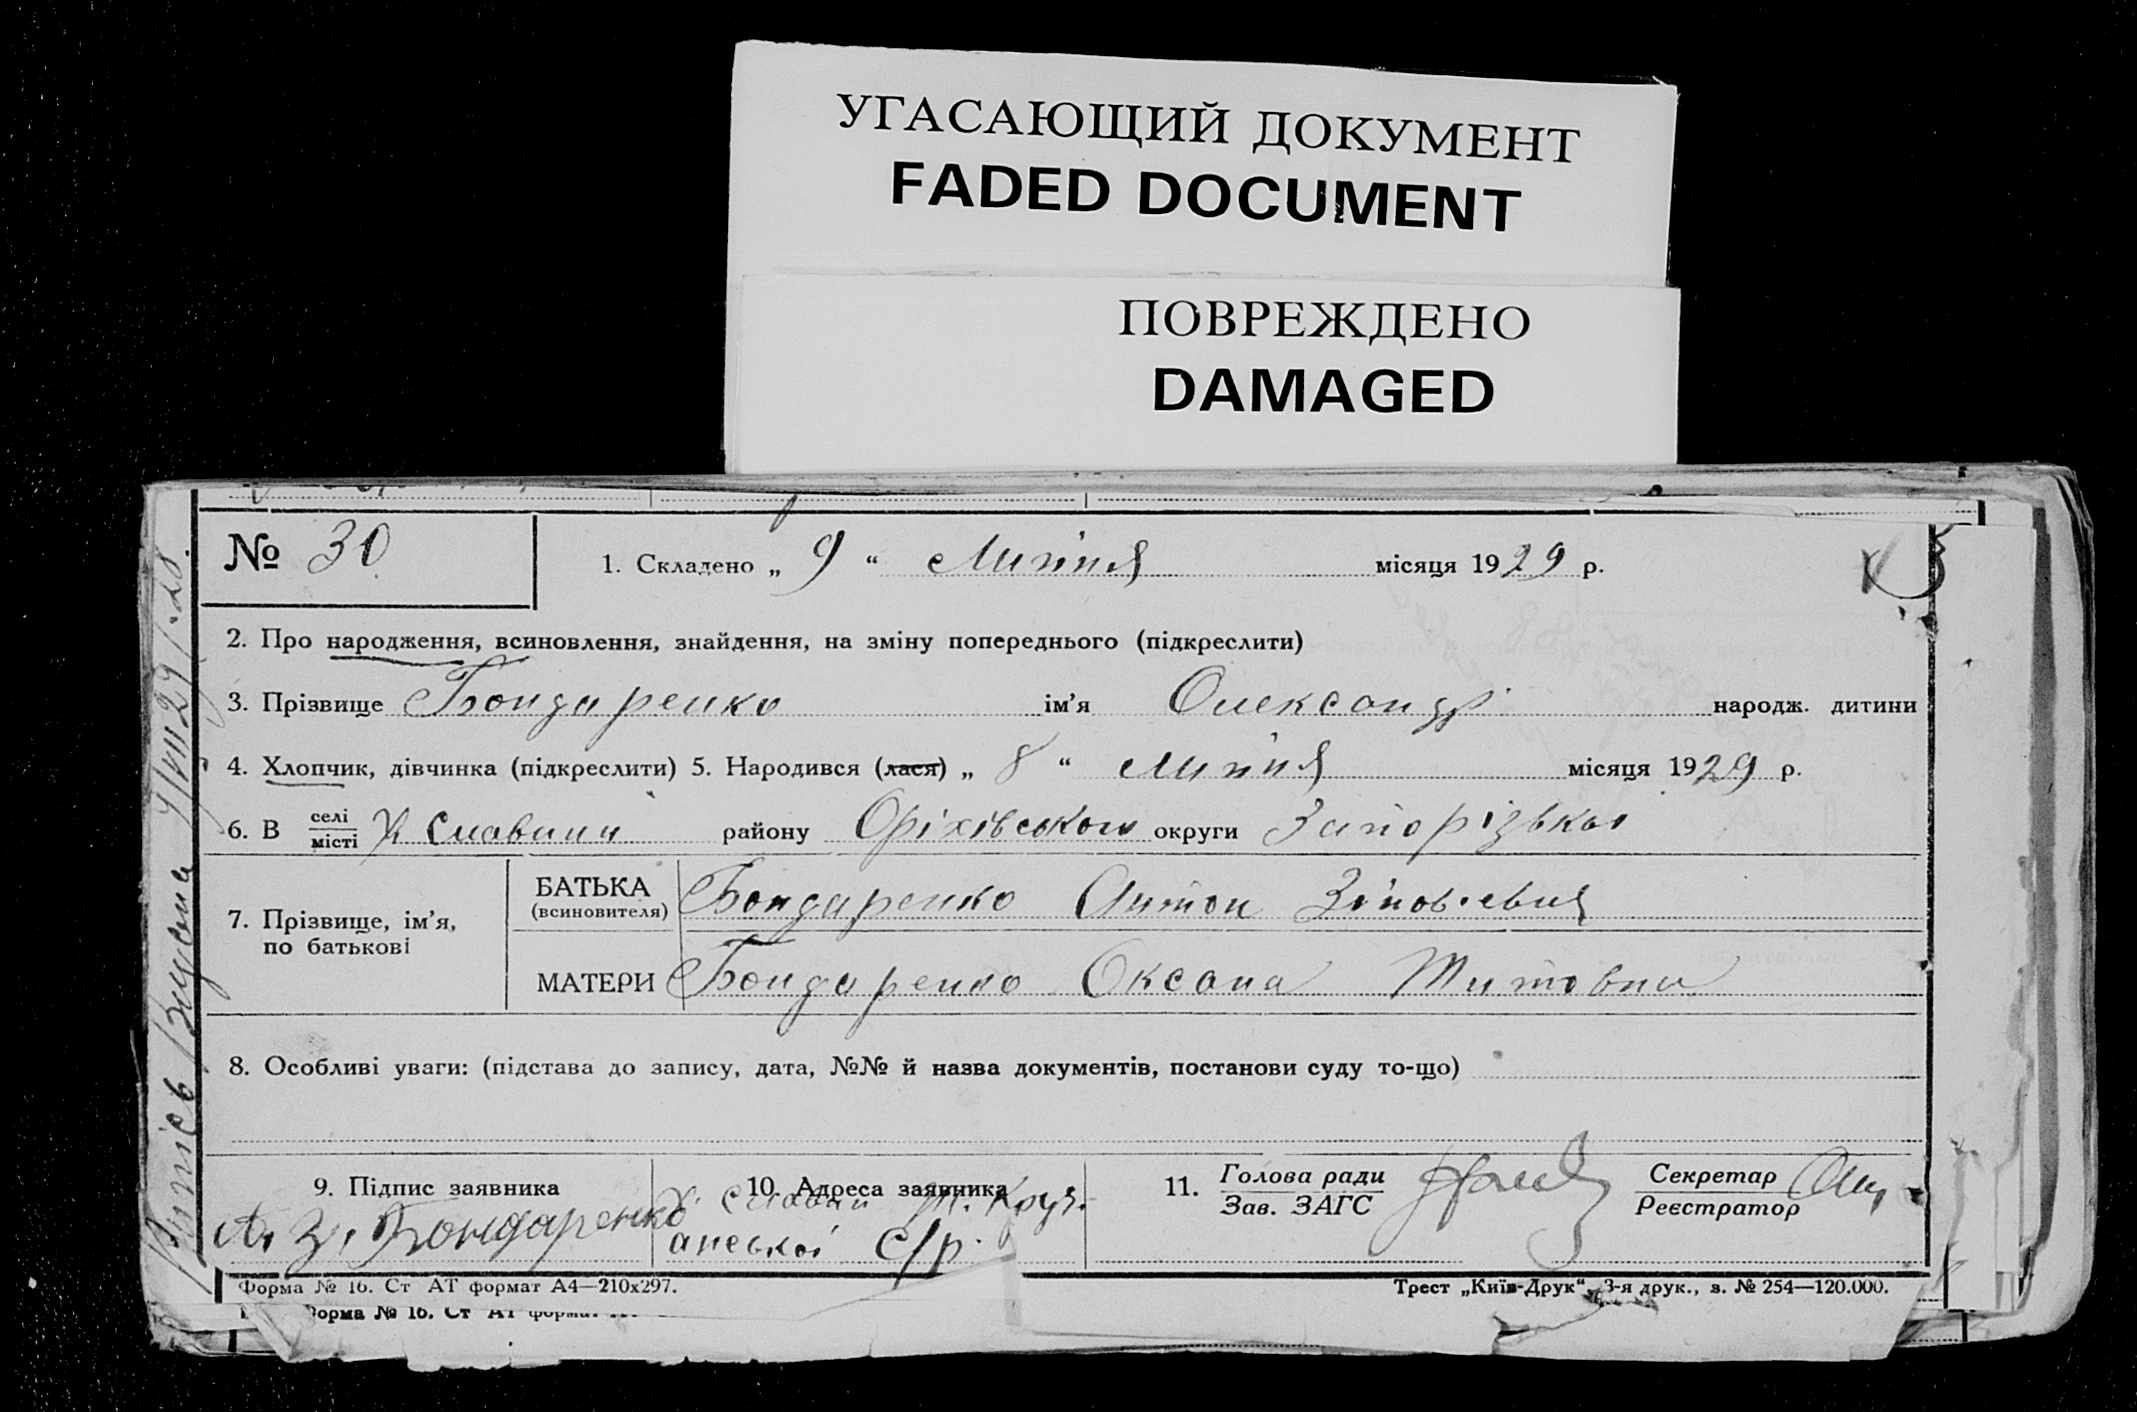 УГАСАЮЩИЙ ДОКУМЕНТ
FADED DOCUMENT
ПОВРЕЖДЕНО
DAMAGED
№ 30
1. Складено „ 9 “ Липня місяця 1929 р.
2. Про народження, всиновлення, знайдення, на зміну попереднього (підкреслити)
3. Прізвище Бондаренко ім’я Олександр народж. дитини
4. Хлопчик, дівчинка (підкреслити) 5. Народився (лася) „ 8 “ Липня місяця 1929 р.
6. В селі місті Х. Славини району Оріхівського округи Запорізької
7. Прізвище, ім’я, по батькові
БАТЬКА (всиновителя) Бондаренко Антон Зіновієвич
МАТЕРИ Бондаренко Оксана Титовна
8. Особливі уваги: (підстава до запису, дата, №№ й назва документів, постанови суду то-що)
9. Підпис заявника
А. З. Бондаренко
10. Адреса заявника
анської с/р.
11. Голова ради
Зав. ЗАГС
Секретар
Реєстратор
Форма № 16. Ст АТ формат А4—210х297.
Трест „Київ-Друк“, 3-я друк., з. № 254—120.000.
Форма № 16. Ст АТ